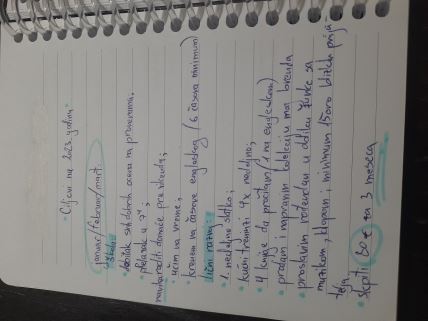 "Ciljevi na 2023. godinu"
januar/februar/mart.
škola:
• dobitak svih dobrih ocena na
• prelazak u 7
navika raditi domaće pre vikenda;
• učim na vreme;
• krenem na časove engleskog (6 časova minimum)
lični razvoj:
• 1. nedeljno slatko;
• kućni treninzi 4x nedeljno;
• 4 knjige da pročitam (1 na engleskom)
• prodam i napravim kolekciju mog brenda
• proslavim rođendan u obliku žurke sa
muzikom, klopom; minimum 15oro bliskih prija
telja
• skupiti 80€ za 3 meseca